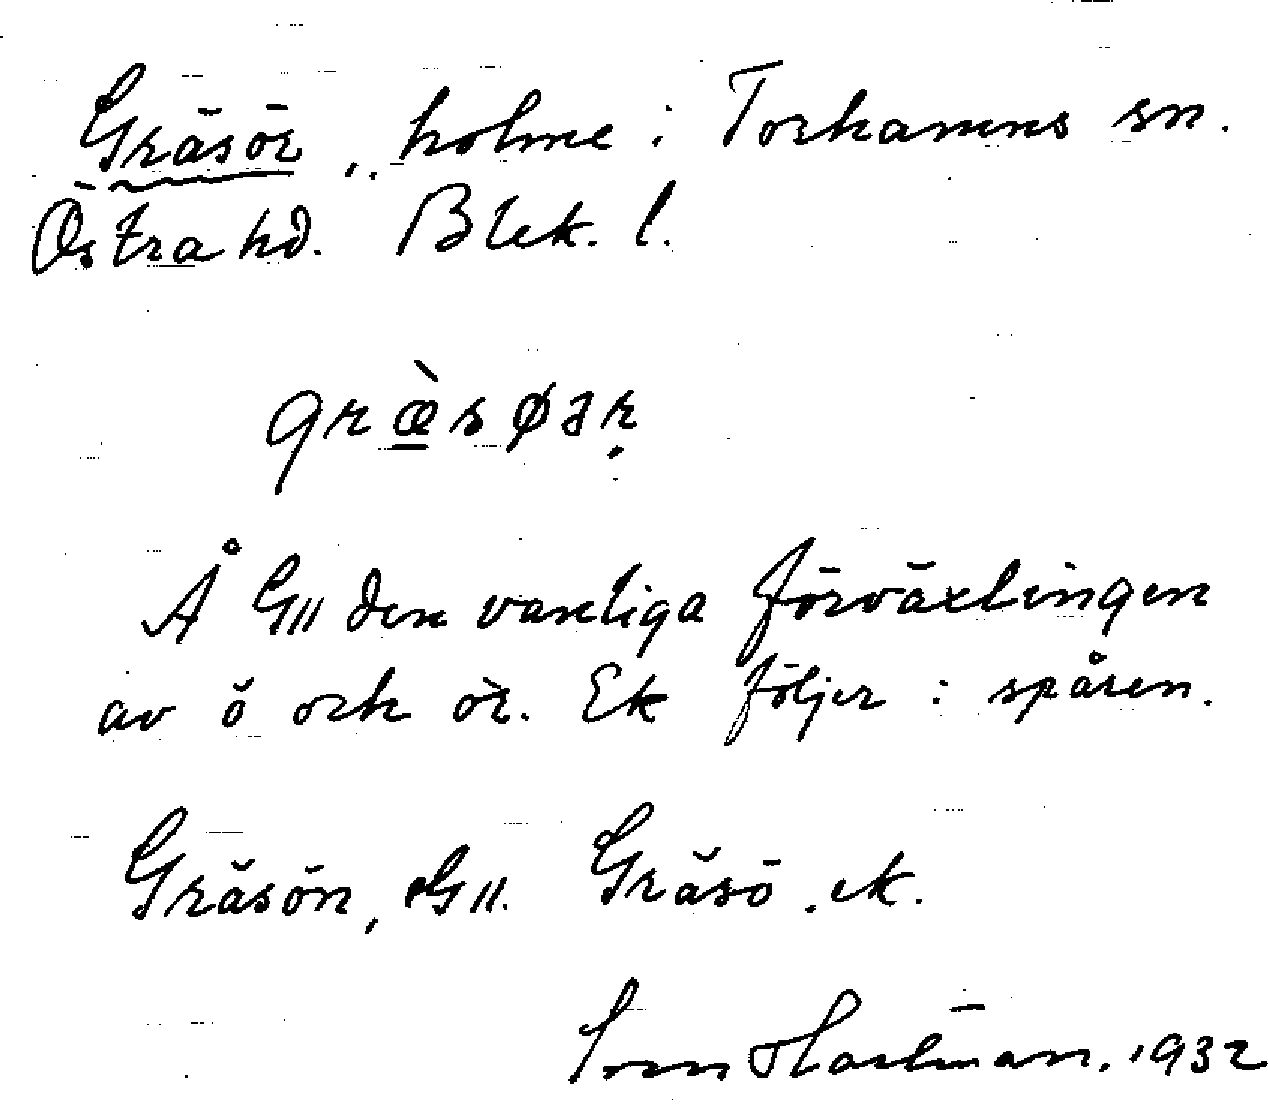 Gräsör, holme i Torhamns sn.
Östra hd. Blek. l.
græ̀søər
Å G11 den vanliga förväxlingen
av ö och ör. Ek följer i spåren.
Gräsön, G11. Gräsö. ek.
Sven Hartman. 1932